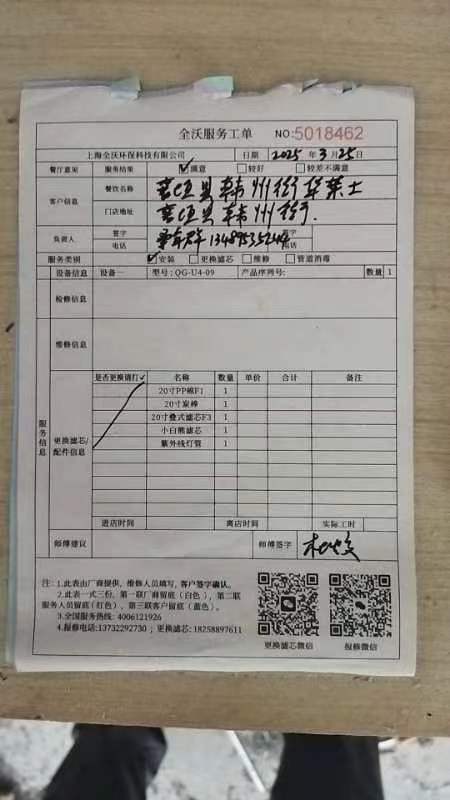 全沃服务工单 NO:5018462
上海全沃环保科技有限公司 日期 2025 年 3 月 25 日
餐厅意见 服务结果 ✓满意 较好 较差不满意
客户信息 餐饮名称 县韩州街华莱士
门店地址 县韩州街
负责人 签字 签字
电话 电话
服务类别 ✓安装 更换滤芯 维修 管道消毒
设备信息 设备一 型号:QG-U4-09 产品序列号: 数量 1
检修信息
维修信息
服务信息
更换滤芯/配件信息
是否更换请打✓ 名称 数量 单价 合计 备注
20寸PP棉F1 1
20寸炭棒 1
20寸叠式滤芯F3 1
小白熊滤芯 1
紫外线灯管 1
进店时间 离店时间 实际工时
师傅建议 师傅签字
注: 1.此表由厂商提供，维修人员填写，客户签字确认。
2.此表一式三份，第一联厂商留底（白色），第二联
服务人员留底(红色)，第三联客户留底（蓝色）。
3.全国服务热线: 4006121926
4.报修电话:13732292730 ; 更换滤芯: 18258897611
更换滤芯微信 报修微信